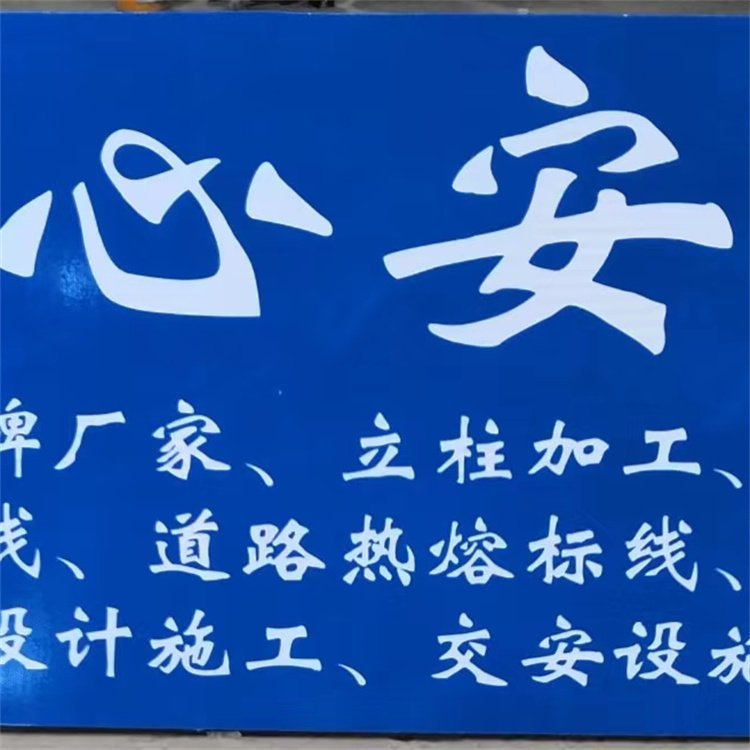 心安
牌厂家、立柱加工、
线、道路热熔标线、
设计施工、交安设施